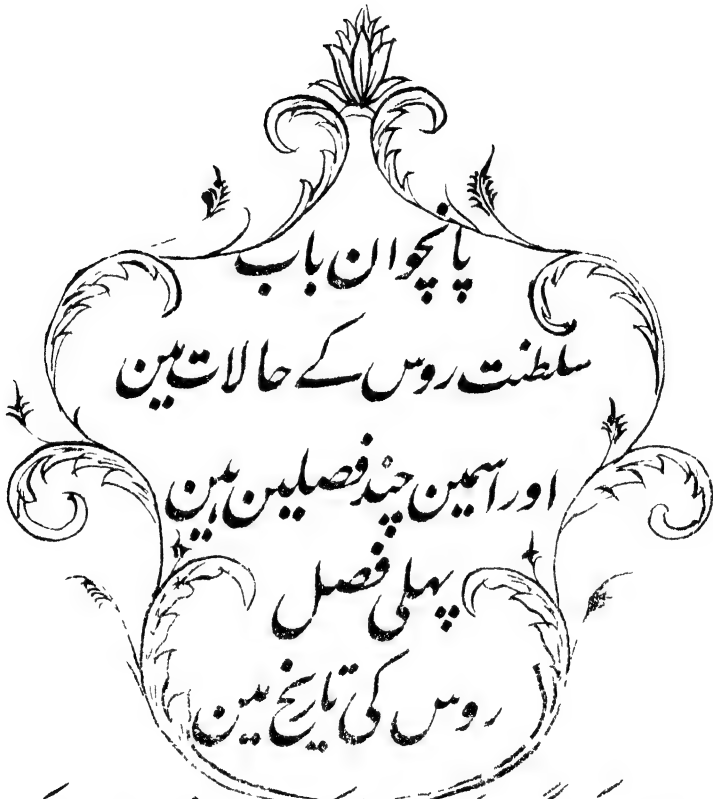 پانچوان باب
سلطنت روس کے حالات مین
اور اسمین چند فصلین ہین
پہلی فصل
روس کی تاریخ مین